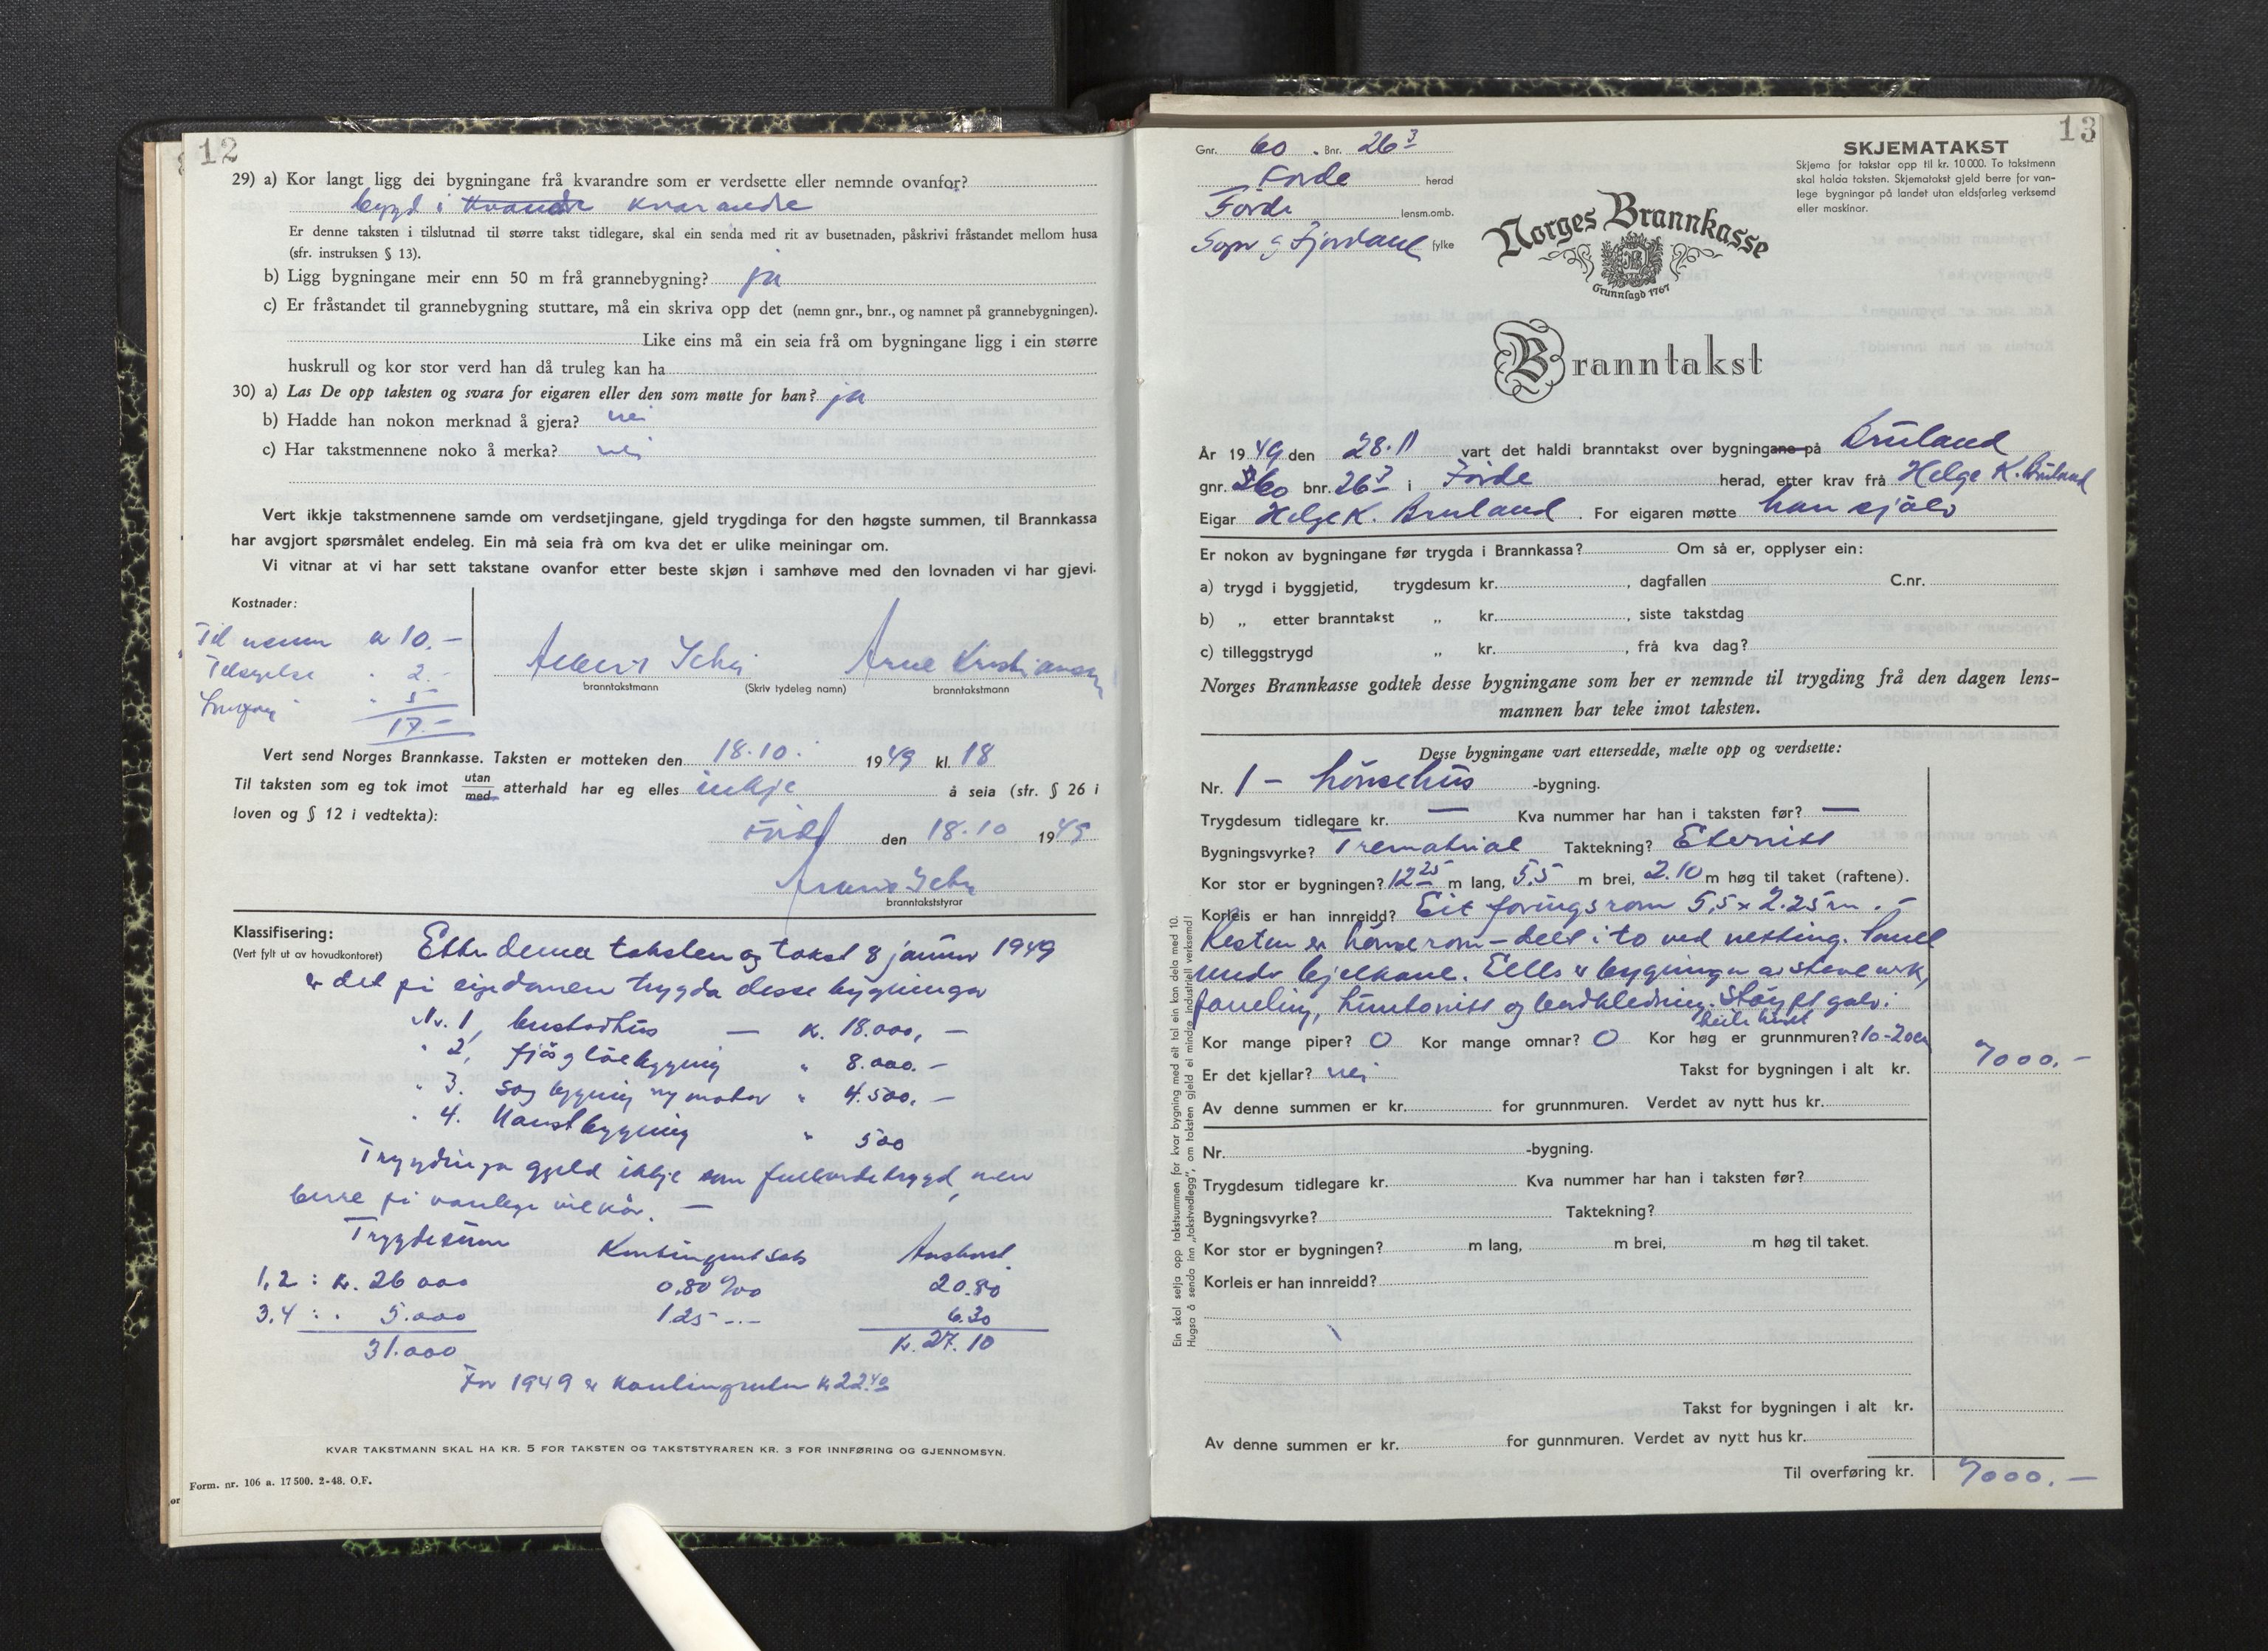 12
29) a) Kor langt ligg dei bygningane frå kvarandre som er verdsette eller nemnde ovanfor?
bygd i kvarandre
Er denne taksten i tilslutnad til større takst tidlegare, skal ein senda med rit av busetnaden, påskrivi fråstandet mellom husa
(sfr. instruksen § 13).
b) Ligg bygningane meir enn 50 m frå grannebygning? ja
c) Er fråstandet til grannebygning stuttare, må ein skriva opp det (nemn gnr., bnr., og namnet på grannebygningen).
Like eins må ein seia frå om bygningane ligg i ein større
huskrull og kor stor verd han då truleg kan ha
30) a) Las De opp taksten og svara for eigaren eller den som møtte for han? ja
b) Hadde han nokon merknad å gjera? nei
c) Har takstmennene noko å merka? nei
Vert ikkje takstmennene samde om verdsetjingane, gjeld trygdinga for den høgste summen, til Brannkassa
har avgjort spørsmålet endeleg. Ein må seia frå om kva det er ulike meiningar om.
Vi vitnar at vi har sett takstane ovanfor etter beste skjøn i samhøve med den lovnaden vi har gjevi.
Kostnader:
10.-
2.-
5
17.-
Arne Kristiansen
branntakstmann (Skriv tydeleg namn) branntakstmann
Vert send Norges Brannkasse. Taksten er motteken den 18.10. 1949 kl. 18
Til taksten som eg tok imot utan/med atterhald har eg elles inkje å seia (sfr. § 26 i
loven og § 12 i vedtekta):
Förde den 18.10 1949
branntakststyrar
Klassifisering:
(Vert fylt ut av hovudkontoret)
Etter denne taksten og takst 8 januar 1949
er det på eigedomen trygda desse bygningar
Nr. 1, bustadhus — kr. 18.000,-
" 2, fjös g löebygning " 8.000.-
" 3. sag bygning m motor " 4.500.-
" 4. Naustbygning " 500
Trygdinga gjeld ikkje som fullverdetrygd, men
berre på vanlege vilkår. —
Trygdesum Kontingentsats
1,2 : kr. 26 000 0,80 ‰ 20.80
3.4 : . 5.000 1.25 -.- 6.30
31.000 kr. 27.10
For 1949 er kontingenten kr 22.40
KVAR TAKSTMANN SKAL HA KR. 5 FOR TAKSTEN OG TAKSTSTYRAREN KR. 3 FOR INNFØRING OG GJENNOMSYN.
Form. nr. 106 a. 17 500. 2-48. O.F.
13
Gnr. 60 . Bnr. 26 3
Förde herad
Förde lensm.omb.
Sogn g Fjordane fylke
SKJEMATAKST
Skjema for takstar opp til kr. 10 000. To takstmenn
skal halda taksten. Skjematakst gjeld berre for van-
lege bygningar på landet utan eldsfarleg verksemd
eller maskinar.
Norges Brannkasse
Grunnlagd 1767
Branntakst
År 1949 den 28.11 vart det haldi branntakst over bygningane på Bruland
gnr. 60 bnr. 26 3 i Förde herad, etter krav frå Helge K. Bruland
Eigar Helge K. Bruland . For eigaren møtte han sjølv
Er nokon av bygningane før trygda i Brannkassa? Om så er, opplyser ein:
a) trygd i byggjetid, trygdesum kr. , dagfallen C.nr.
b) „ etter branntakst „ kr. , siste takstdag
c) tilleggstrygd „ kr. , frå kva dag?
Norges Brannkasse godtek desse bygningane som her er nemnde til trygding frå den dagen lens-
mannen har teke imot taksten.
Desse bygningane vart ettersedde, mælte opp og verdsette:
Nr. 1 - hönsehus -bygning.
Trygdesum tidlegare kr. — Kva nummer har han i taksten før? —
Bygningsvyrke? Trematrial Taktekning? Eternitt
Kor stor er bygningen? 12 25 m lang, 5,5 m brei, 2.10 m høg til taket (raftene).
Korleis er han innreidd? Eit foringsrom 5,5 x 2.25 m. -
Resten er hönserom - delt i to ved netting. Panel
under bjelkane. Ellers er bygningen av stenverk,
paneling, huntonitt og bordkledning. Støypt golv i
heile huset
Kor mange piper? 0 Kor mange omnar? 0 Kor høg er grunnmuren? 10-20 cm
Er det kjellar? nei Takst for bygningen i alt kr. 7000.-
Av denne summen er kr. for grunnmuren. Verdet av nytt hus kr.
Nr. -bygning.
Trygdesum tidlegare kr. Kva nummer har han i taksten før?
Bygningsvyrke? Taktekning?
Kor stor er bygningen? m lang, m brei, m høg til taket.
Korleis er han innreidd?
Takst for bygningen i alt kr.
Av denne summen er kr. for gunnmuren. Verdet av nytt hus kr.
Til overføring kr. 7000.-
Ein skal setja opp takstsummen for kvar bygning med eit tal ein kan dela med 10.
Hugsa å senda inn „takstvedlegg”, om taksten gjeld ei mindre industriell verksemd!